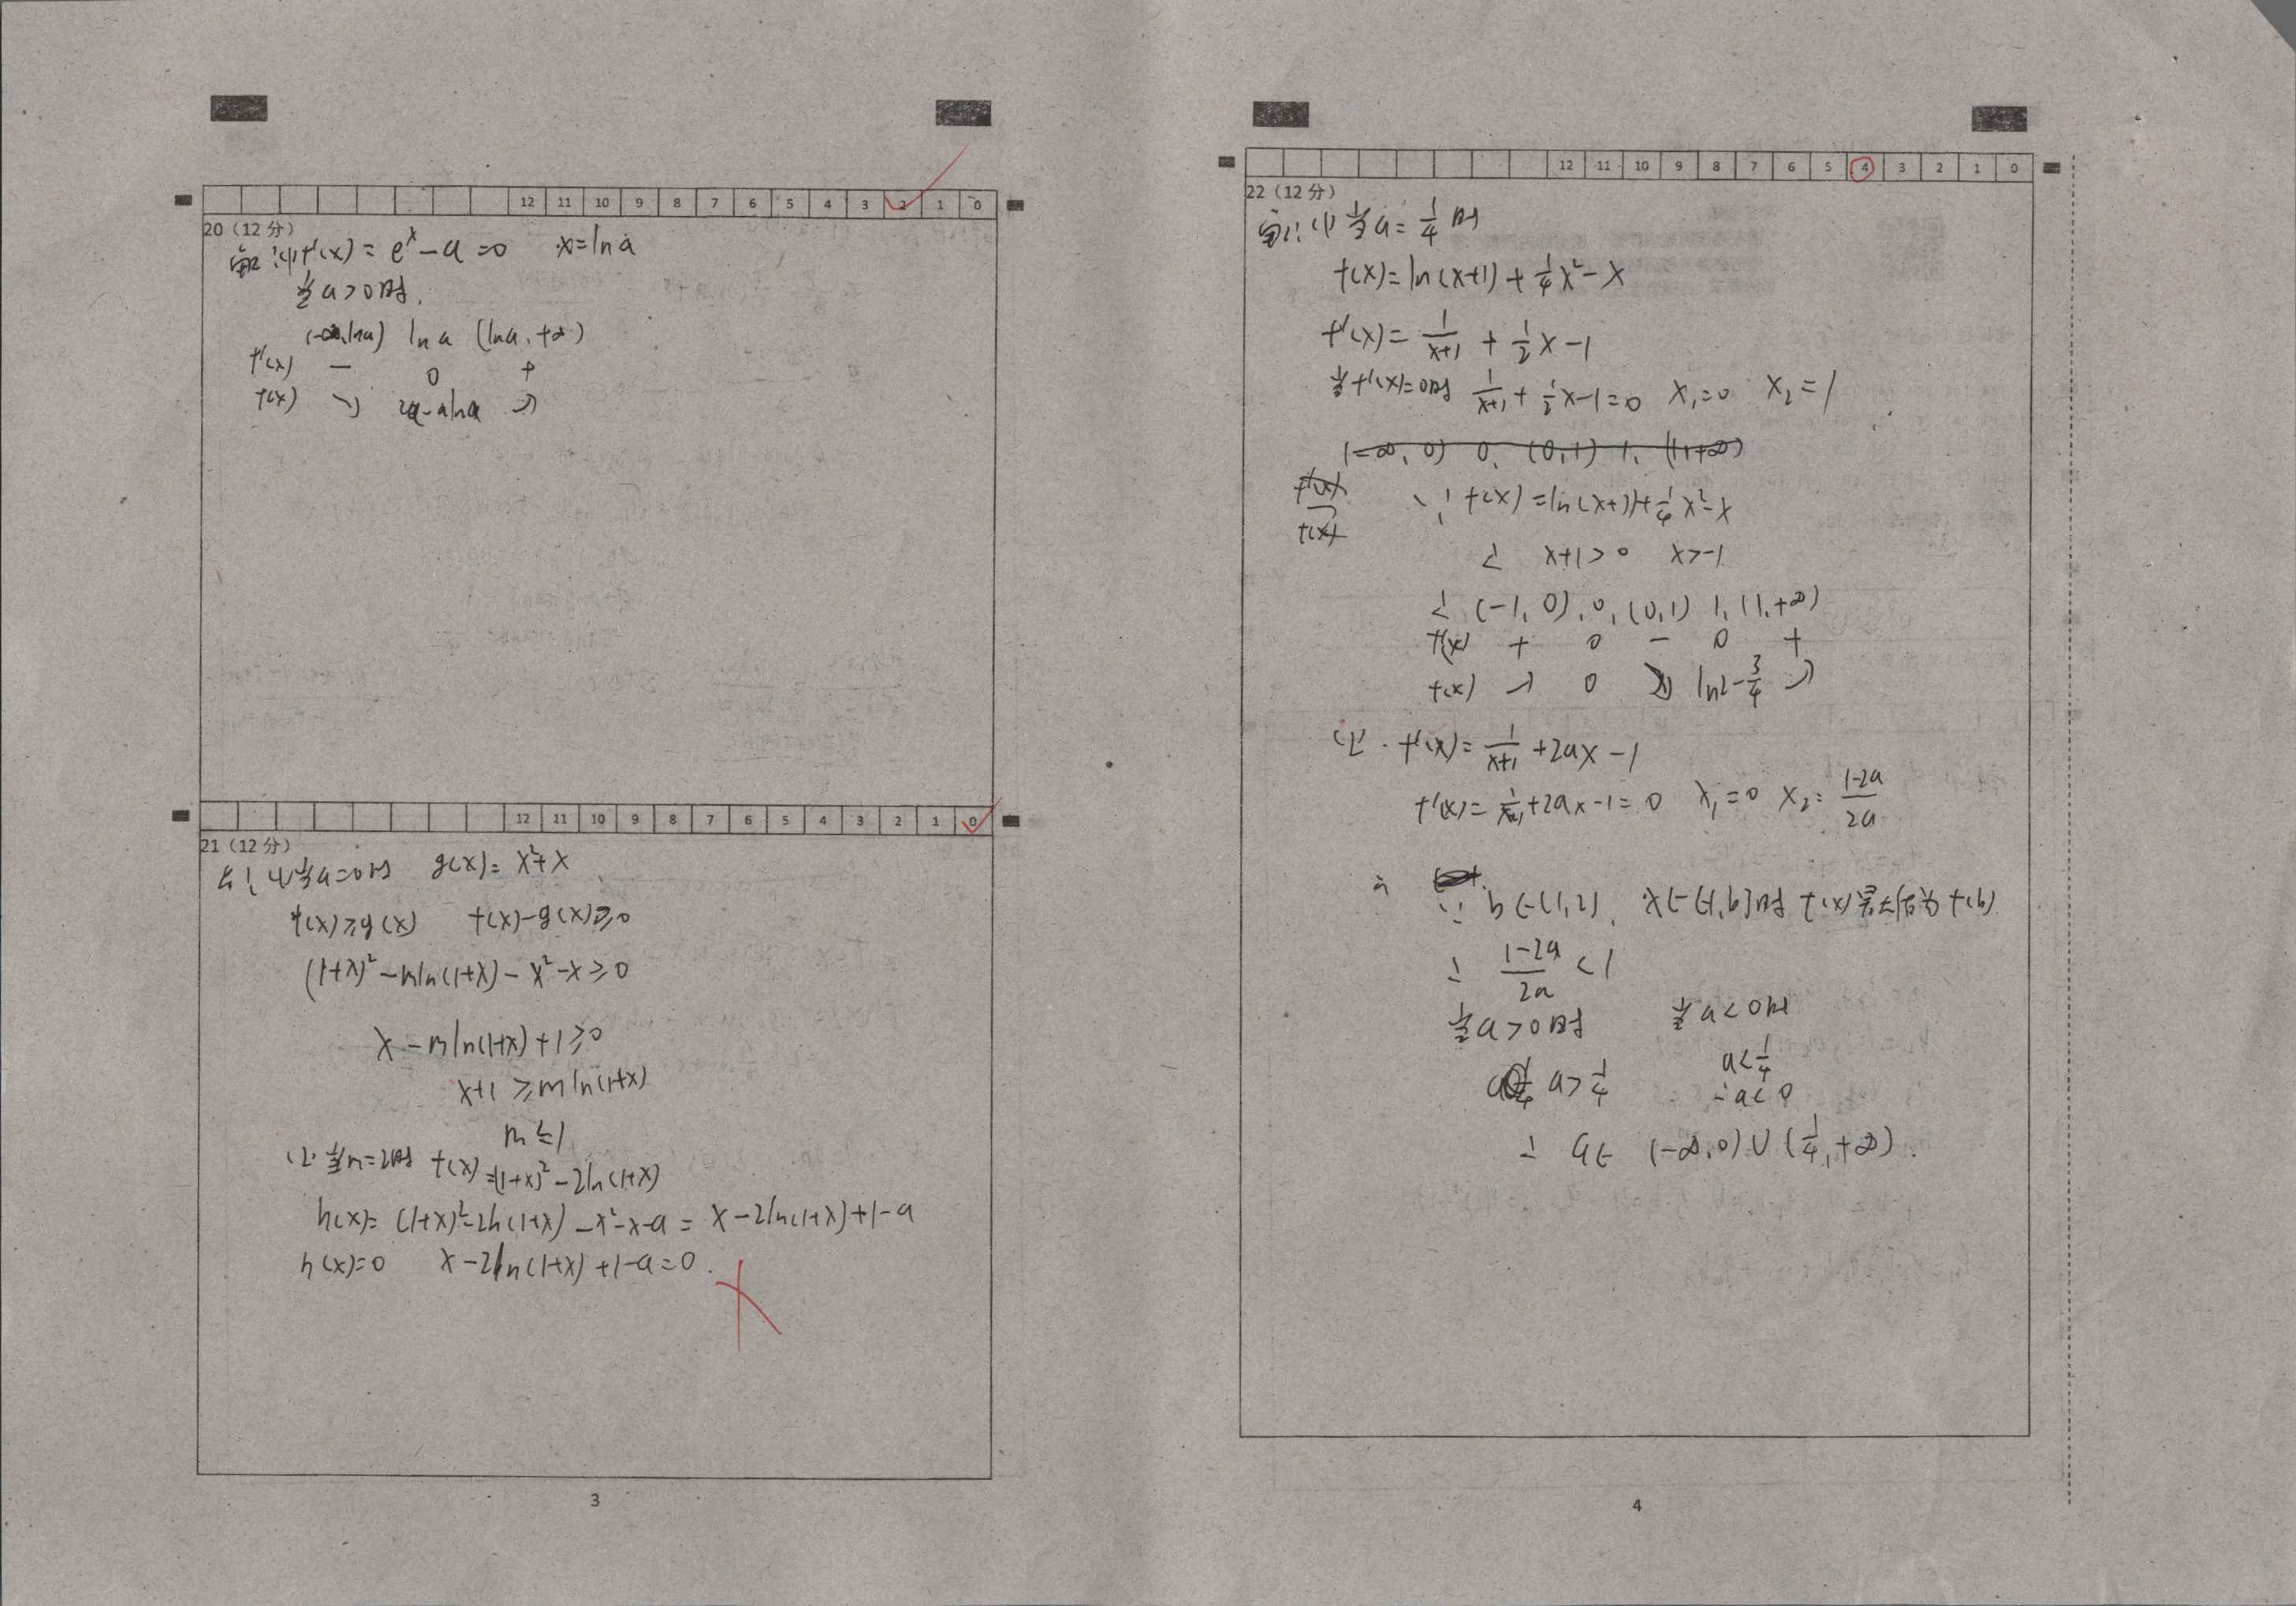 12 11 10 9 8 7 6 5 4 3 2 1 0
20（12 分）
解：(1) f'(x) = e^x - a = 0 x = ln a
当 a > 0 时.
(-∞, ln a) ln a (ln a, +∞)
f'(x) - 0 + 
f(x) ↘ 2a - a ln a ↗
12 11 10 9 8 7 6 5 4 3 2 1 0
21（12 分）
(1) 当 a = 0 时 g(x) = x² + x
f(x) ≥ g(x) f(x) - g(x) ≥ 0
(1+x)² - m ln(1+x) - x² - x ≥ 0
x - m ln(1+x) + 1 ≥ 0
x+1 ≥ m ln(1+x)
m ≤ 1
(2) 当 m = 2 时 f(x) = (1+x)² - 2ln(1+x)
h(x) = (1+x)² - 2ln(1+x) - x² - x - a = x - 2ln(1+x) + 1 - a
h(x) = 0 x - 2ln(1+x) + 1 - a = 0.
3
12 11 10 9 8 7 6 5 4 3 2 1 0
22（12 分）
解：(1) 当 a = 1/4 时
f(x) = ln(x+1) + 1/4 x² - x
f'(x) = 1/(x+1) + 1/2 x - 1
当 f'(x) = 0 时 1/(x+1) + 1/2 x - 1 = 0 x₁ = 0 x₂ = 1
(-∞, 0) 0, (0,1) 1, (1, +∞)
f'(x)
f(x)
∵ f(x) = ln(x+1) + 1/4 x² - x
∴ x+1 > 0 x > -1
∴ (-1, 0), 0, (0,1) 1, (1, +∞)
f'(x) + 0 - 0 +
f(x) ↗ 0 ↘ ln2 - 3/4 ↗
(2) f'(x) = 1/(x+1) + 2ax - 1
f'(x) = 1/(x+1) + 2ax - 1 = 0 x₁ = 0 x₂ = (1-2a)/2a
∵ b ∈ (1,2), x ∈ (-1, b] 时 f(x) 最大值为 f(b)
∴ (1-2a)/2a < 1
当 a > 0 时 当 a < 0 时
a > 1/4 a < 1/4
∴ a < 0
∴ a ∈ (-∞, 0) ∪ (1/4, +∞).
4